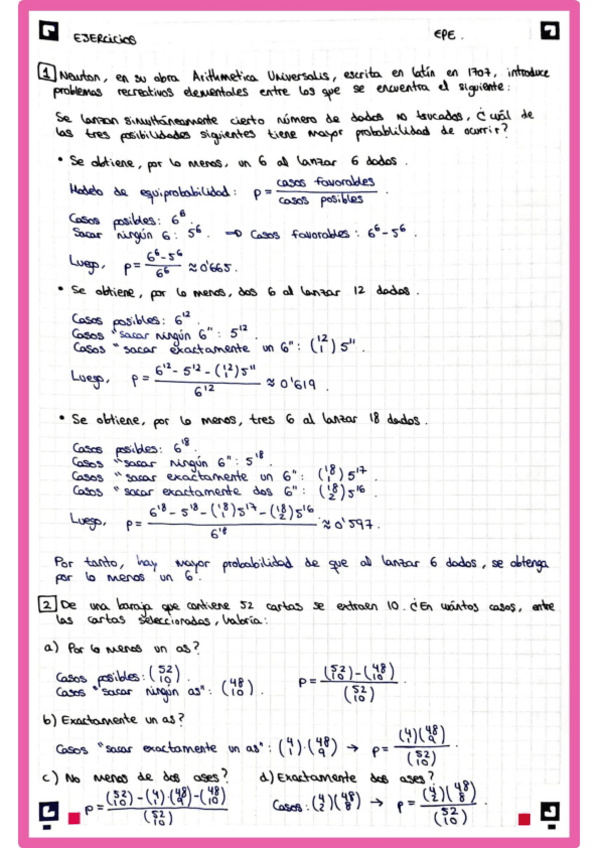 EJERCICIOS EPE.
1 Newton, en su obra Arithmetica Universalis, escrita en latín en 1707, introduce
problemas recreativos elementales entre los que se encuentra el siguiente:
Se lanzan simultáneamente cierto número de dados no trucados, ¿cuál de
las tres posibilidades siguientes tiene mayor probabilidad de ocurrir?
• Se obtiene, por lo menos, un 6 al lanzar 6 dados.
Modelo de equiprobabilidad: p = casos favorables / casos posibles.
Casos posibles: 6⁶.
Sacar ningún 6: 5⁶. ⇒ Casos favorables: 6⁶-5⁶.
Luego, p = (6⁶-5⁶)/6⁶ ≈ 0'665.
• Se obtiene, por lo menos, dos 6 al lanzar 12 dados.
Casos posibles: 6¹².
Casos "sacar ningún 6": 5¹².
Casos "sacar exactamente un 6": (12 1) 5¹¹.
Luego, p = (6¹² - 5¹² - (12 1) 5¹¹)/6¹² ≈ 0'619.
• Se obtiene, por lo menos, tres 6 al lanzar 18 dados.
Casos posibles: 6¹⁸
Casos "sacar ningún 6": 5¹⁸.
Casos "sacar exactamente un 6": (18 1) 5¹⁷
Casos "sacar exactamente dos 6": (18 2) 5¹⁶
Luego, p = (6¹⁸ - 5¹⁸ - (18 1) 5¹⁷ - (18 2) 5¹⁶)/6¹⁸ ≈ 0'597.
Por tanto, hay mayor probabilidad de que al lanzar 6 dados, se obtenga
por lo menos un 6.
2 De una baraja que contiene 52 cartas se extraen 10. ¿En cuántos casos, entre
las cartas seleccionadas, habría:
a) Por lo menos un as?
Casos posibles: (52 10)
Casos "sacar ningún as": (48 10). p = ((52 10) - (48 10))/(52 10)
b) Exactamente un as?
Casos "sacar exactamente un as": (4 1)·(48 9) → p = ((4 1)(48 9))/(52 10).
c) No menos de dos ases? d) Exactamente dos ases?
p = ((52 10) - (4 1)·(48 9) - (48 10))/(52 10) Casos: (4 2)(48 8) → p = ((4 2)(48 8))/(52 10).